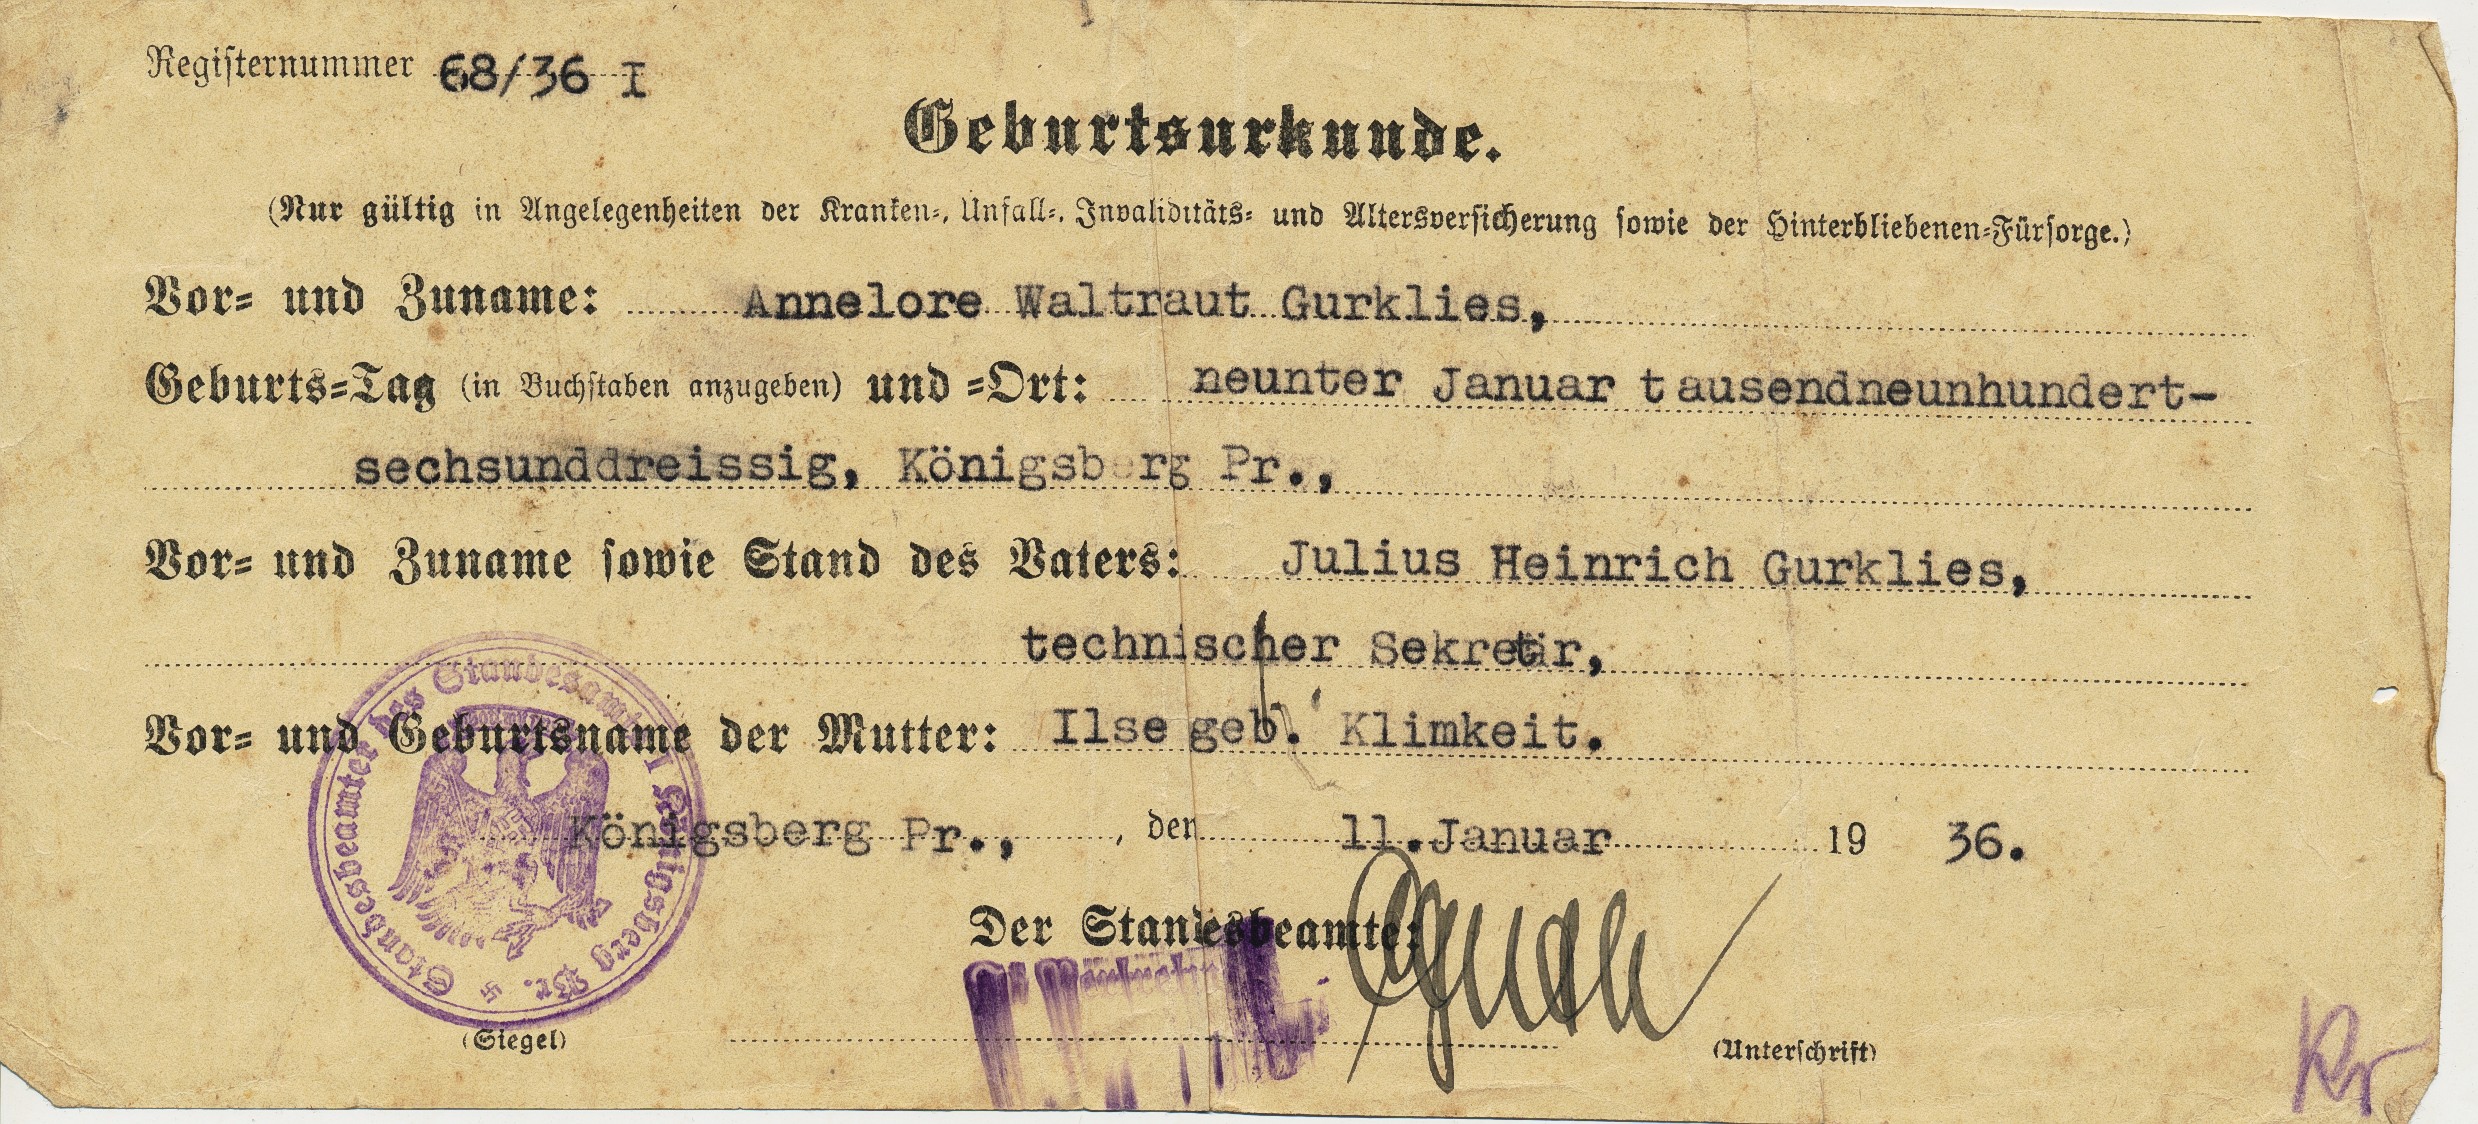 Registernummer 68/36 I
Geburtsurkunde.
(Nur gültig in Angelegenheiten der Kranken-, Unfall-, Invaliditäts- und Altersversicherung sowie der Hinterbliebenen-Fürsorge.)
Vor- und Zuname: Annelore Waltraut Gurklies,
Geburts-Tag (in Buchstaben anzugeben) und -Ort: neunter Januar tausendneunhundert-
sechsunddreissig, Königsberg Pr.,
Vor- und Zuname sowie Stand des Vaters: Julius Heinrich Gurklies,
technischer Sekretär,
Vor- und Geburtsname der Mutter: Ilse geb. Klimkeit.
Königsberg Pr., , den 11.Januar 19 36.
Der Standesbeamte:
(Siegel)
(Unterschrift)
Der Standesbeamte des Standesamts I Königsberg Pr.
Kr